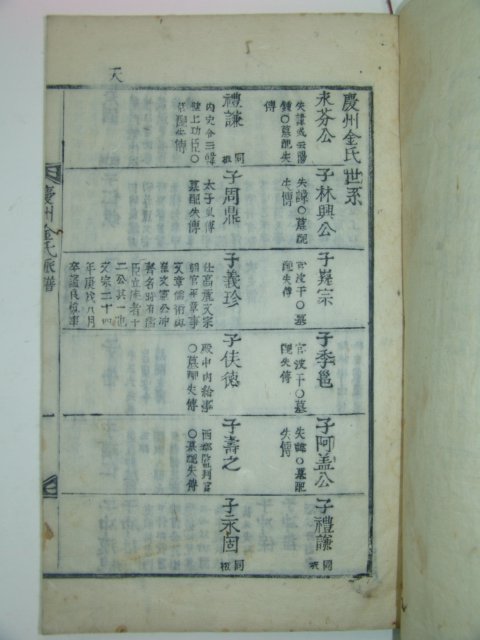 天
慶州金氏世系
末芬公
失諱或云閼
○墓配失
傳
子林興公
失諱○墓配
失傳
子巍宗
官波干○墓
配失傳
子季邕
官波干○墓
配失傳
子阿盖公
失諱○墓配
失傳
子禮謙
同板
禮謙
同板
內史令三韓
壁上功臣○
墓配失傳
子周鼎
太子太傅○
墓配失傳
子義珍
仕高麗文宗
朝官平章事
文章儒術與
崔文憲公冲
齊名時有儒
臣立徒者十
二公其一也
文宗二十四
年庚戌八月
卒謚良愼事
子俠德
殿中內給事
○墓配失傳
子壽之
西部監判官
○墓配失傳
子永固
同板
慶州金氏派譜